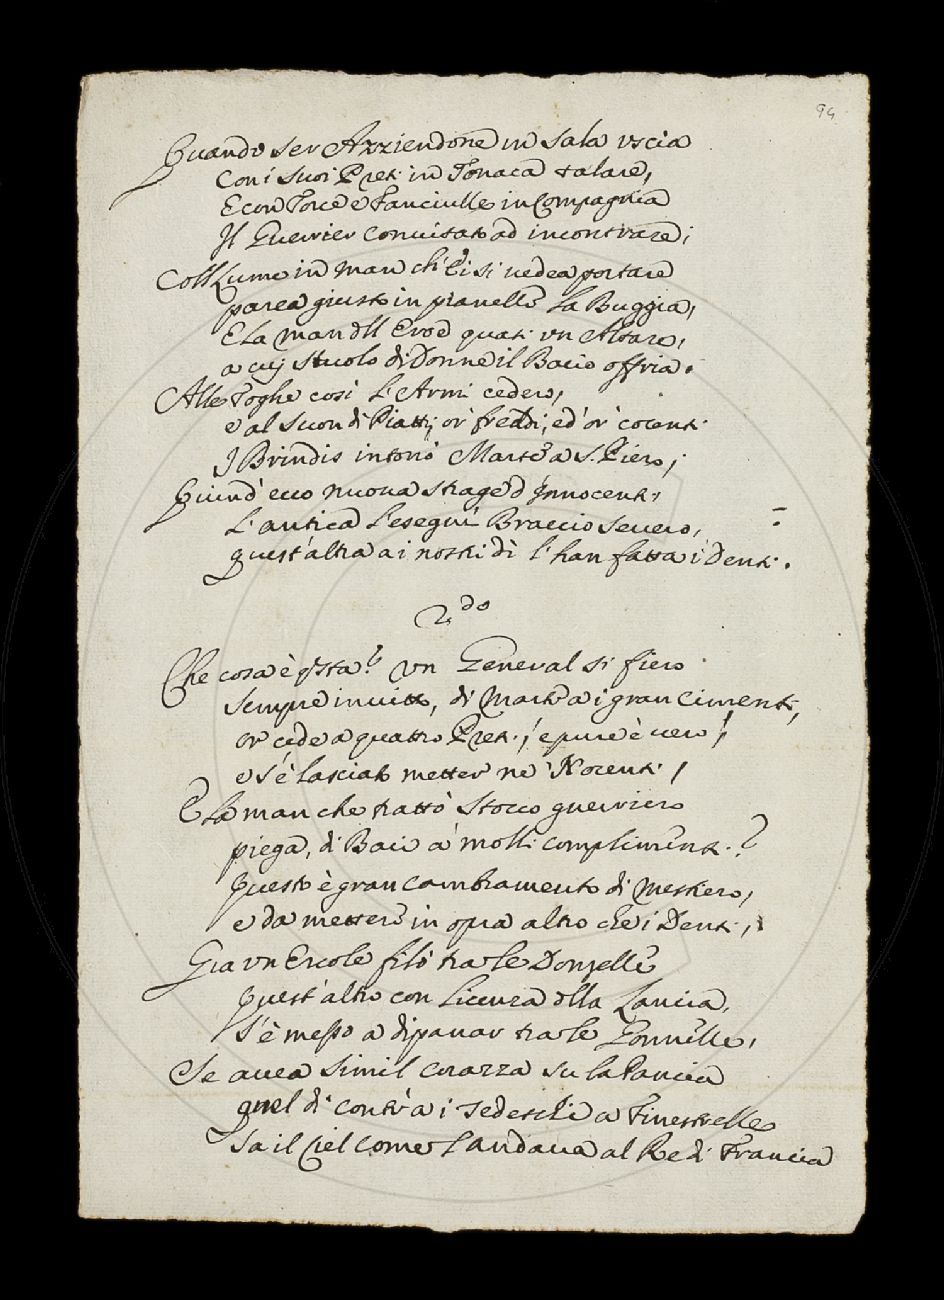 94
Quando ser Azziendone in sala uscia
Con i suoi Preti in Tonaca talare,
E con Torce e Fanciulle in Compagnia
Il Guerrier convitato ad incontrare;
Coll Lume in man ch'Ei si vedea portare
parea giusto in pianelle la Buggia,
E la man dll Eroe quasi un Altare,
a cuj stuolo di Donne il Bacio offria.
Alle Toghe così l'Armi cedero,
e al suon di Piatti, or' freddi, ed' or' cocenti
I Brindis intonò Marte a S. Piero;
Quind' ecco nuova strage d'Innocenti,
L'antica l'eseguì Braccio severo,
quest'altra a i nostri dì l'han fatta i Denti.
2.do
Che cosa è qsta? Un General sì fiero
sempre invitto, di Marte a i gran Cimenti,
or cede a quattro Preti! e pure è vero!
e s'è lasciato metter ne' Nocenti!
E la man che trattò Stocco guerriero
piega, di Baci a' molli complimenti?
Questo è gran cambiamento di Mestiero,
e da mettere in opra altro che i Denti,
Gia un Ercole filò tra le Donzelle
Quest'altro con Licenza dlla Lancia,
S'è messo a dipanar tra le Gonnelle,
Se avea simil corazza su la Pancia
quel dì contr'a i Tedeschi a Finestrelle
Sa il Ciel come l'andava al Re di Francia